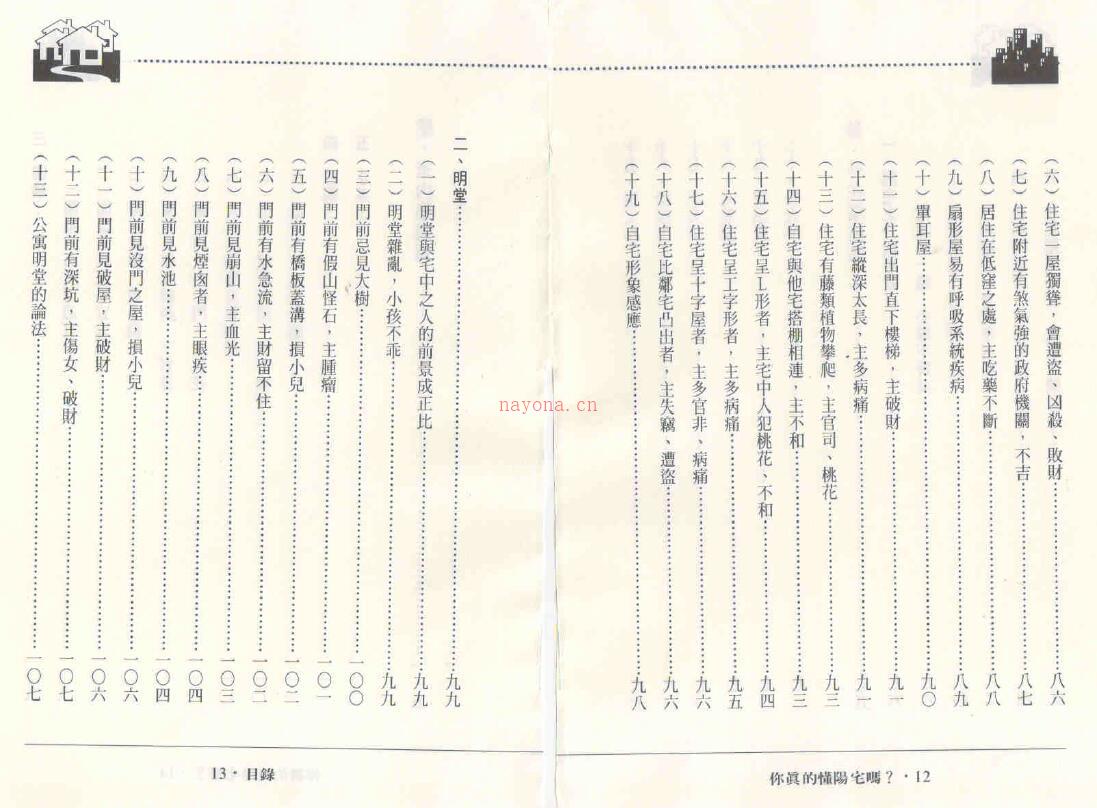 （六）住宅一屋獨聳，會遭盜、凶殺、敗財……八六
（七）住宅附近有煞氣強的政府機關，不吉……八七
（八）居住在低窪之處，主吃藥不斷……八八
（九）扇形屋易有呼吸系統疾病……八九
（十）單耳屋……九〇
（十一）住宅出門直下樓梯，主破財……九一
（十二）住宅縱深太長，主多病痛……九一
（十三）住宅有藤類植物攀爬，主官司、桃花……九三
（十四）自宅與他宅搭棚相連，主不和……九三
（十五）住宅呈L形者，主宅中人犯桃花、不和……九四
（十六）住宅呈工字形者，主多病痛……九五
（十七）住宅呈十字屋者，主多官非、病痛……九六
（十八）自宅比鄰宅凸出者，主失竊、遭盜……九六
（十九）自宅形象感應……九八
你眞的懂陽宅嗎？·12
二、明堂……九九
（一）明堂與宅中之人的前景成正比……九九
（二）明堂雜亂，小孩不乖……九九
（三）門前忌見大樹……一〇〇
（四）門前有假山怪石，主腫瘤……一〇一
（五）門前有橋板蓋溝，損小兒……一〇二
（六）門前有水急流，主財留不住……一〇二
（七）門前見崩山，主血光……一〇三
（八）門前見煙囪者，主眼疾……一〇四
（九）門前見水池……一〇四
（十）門前見沒門之屋，損小兒……一〇六
（十一）門前見破屋，主破財……一〇六
（十二）門前有深坑，主傷女、破財……一〇七
（十三）公寓明堂的論法……一〇七
13·目錄
nayona.cn